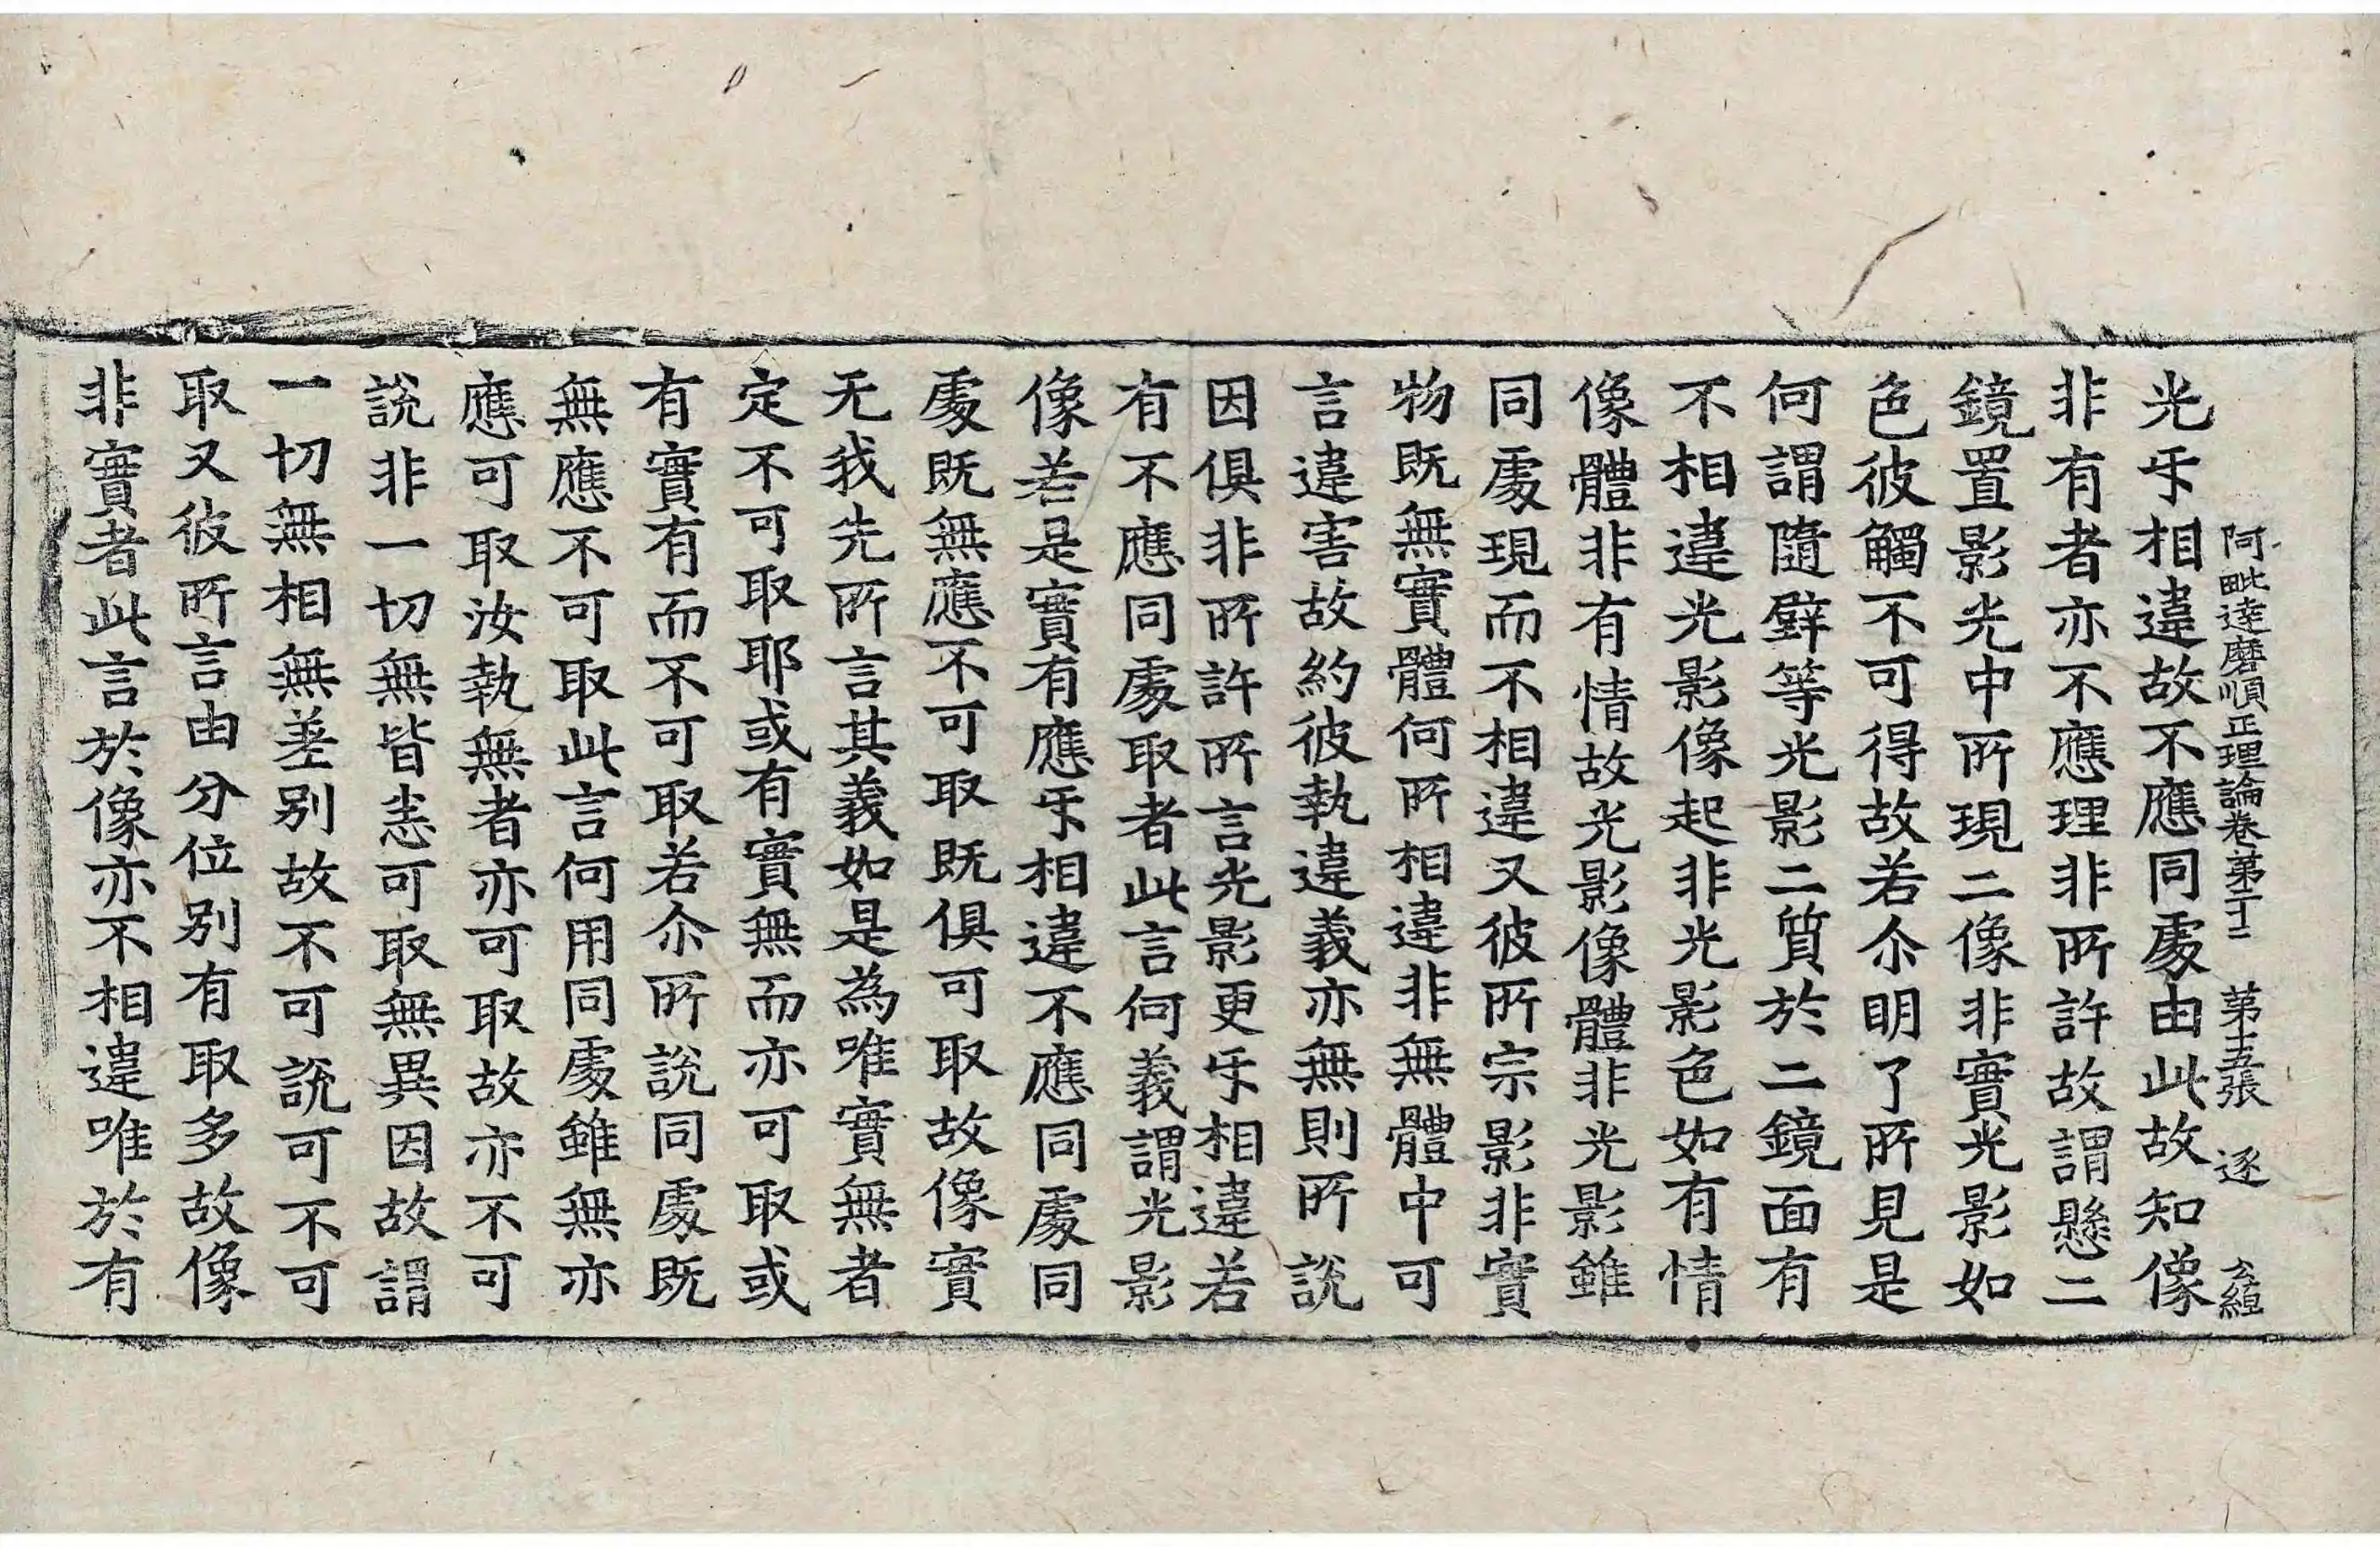 阿毗達磨順正理論卷第二十二 第十五張 逐
光㸦相違故不應同處由此故知像
非有者亦不應理非所許故謂懸二
鏡置影光中所現二像非實光影如
色彼觸不可得故若尒明了所見是
何謂隨壁等光影二質於二鏡面有
不相違光影像起非光影色如有情
像體非有情故光影像體非光影雖
同處現而不相違又彼所宗影非實
物既無實體何所相違非無體中可
言違害故約彼執違義亦無則所說
因俱非所許所言光影更㸦相違若
有不應同處取者此言何義謂光影
像若是實有應㸦相違不應同處同
處既無應不可取既俱可取故像實
无我先所言其義如是為唯實無者
定不可取耶或有實無而亦可取或
有實有而不可取若尒所說同處既
無應不可取此言何用同處雖無亦
應可取汝執無者亦可取故亦不可
說非一切無皆悉可取無異因故謂
一切無相無差別故不可說可不可
取又彼所言由分位別有取多故像
非實者此言於像亦不相違唯於有